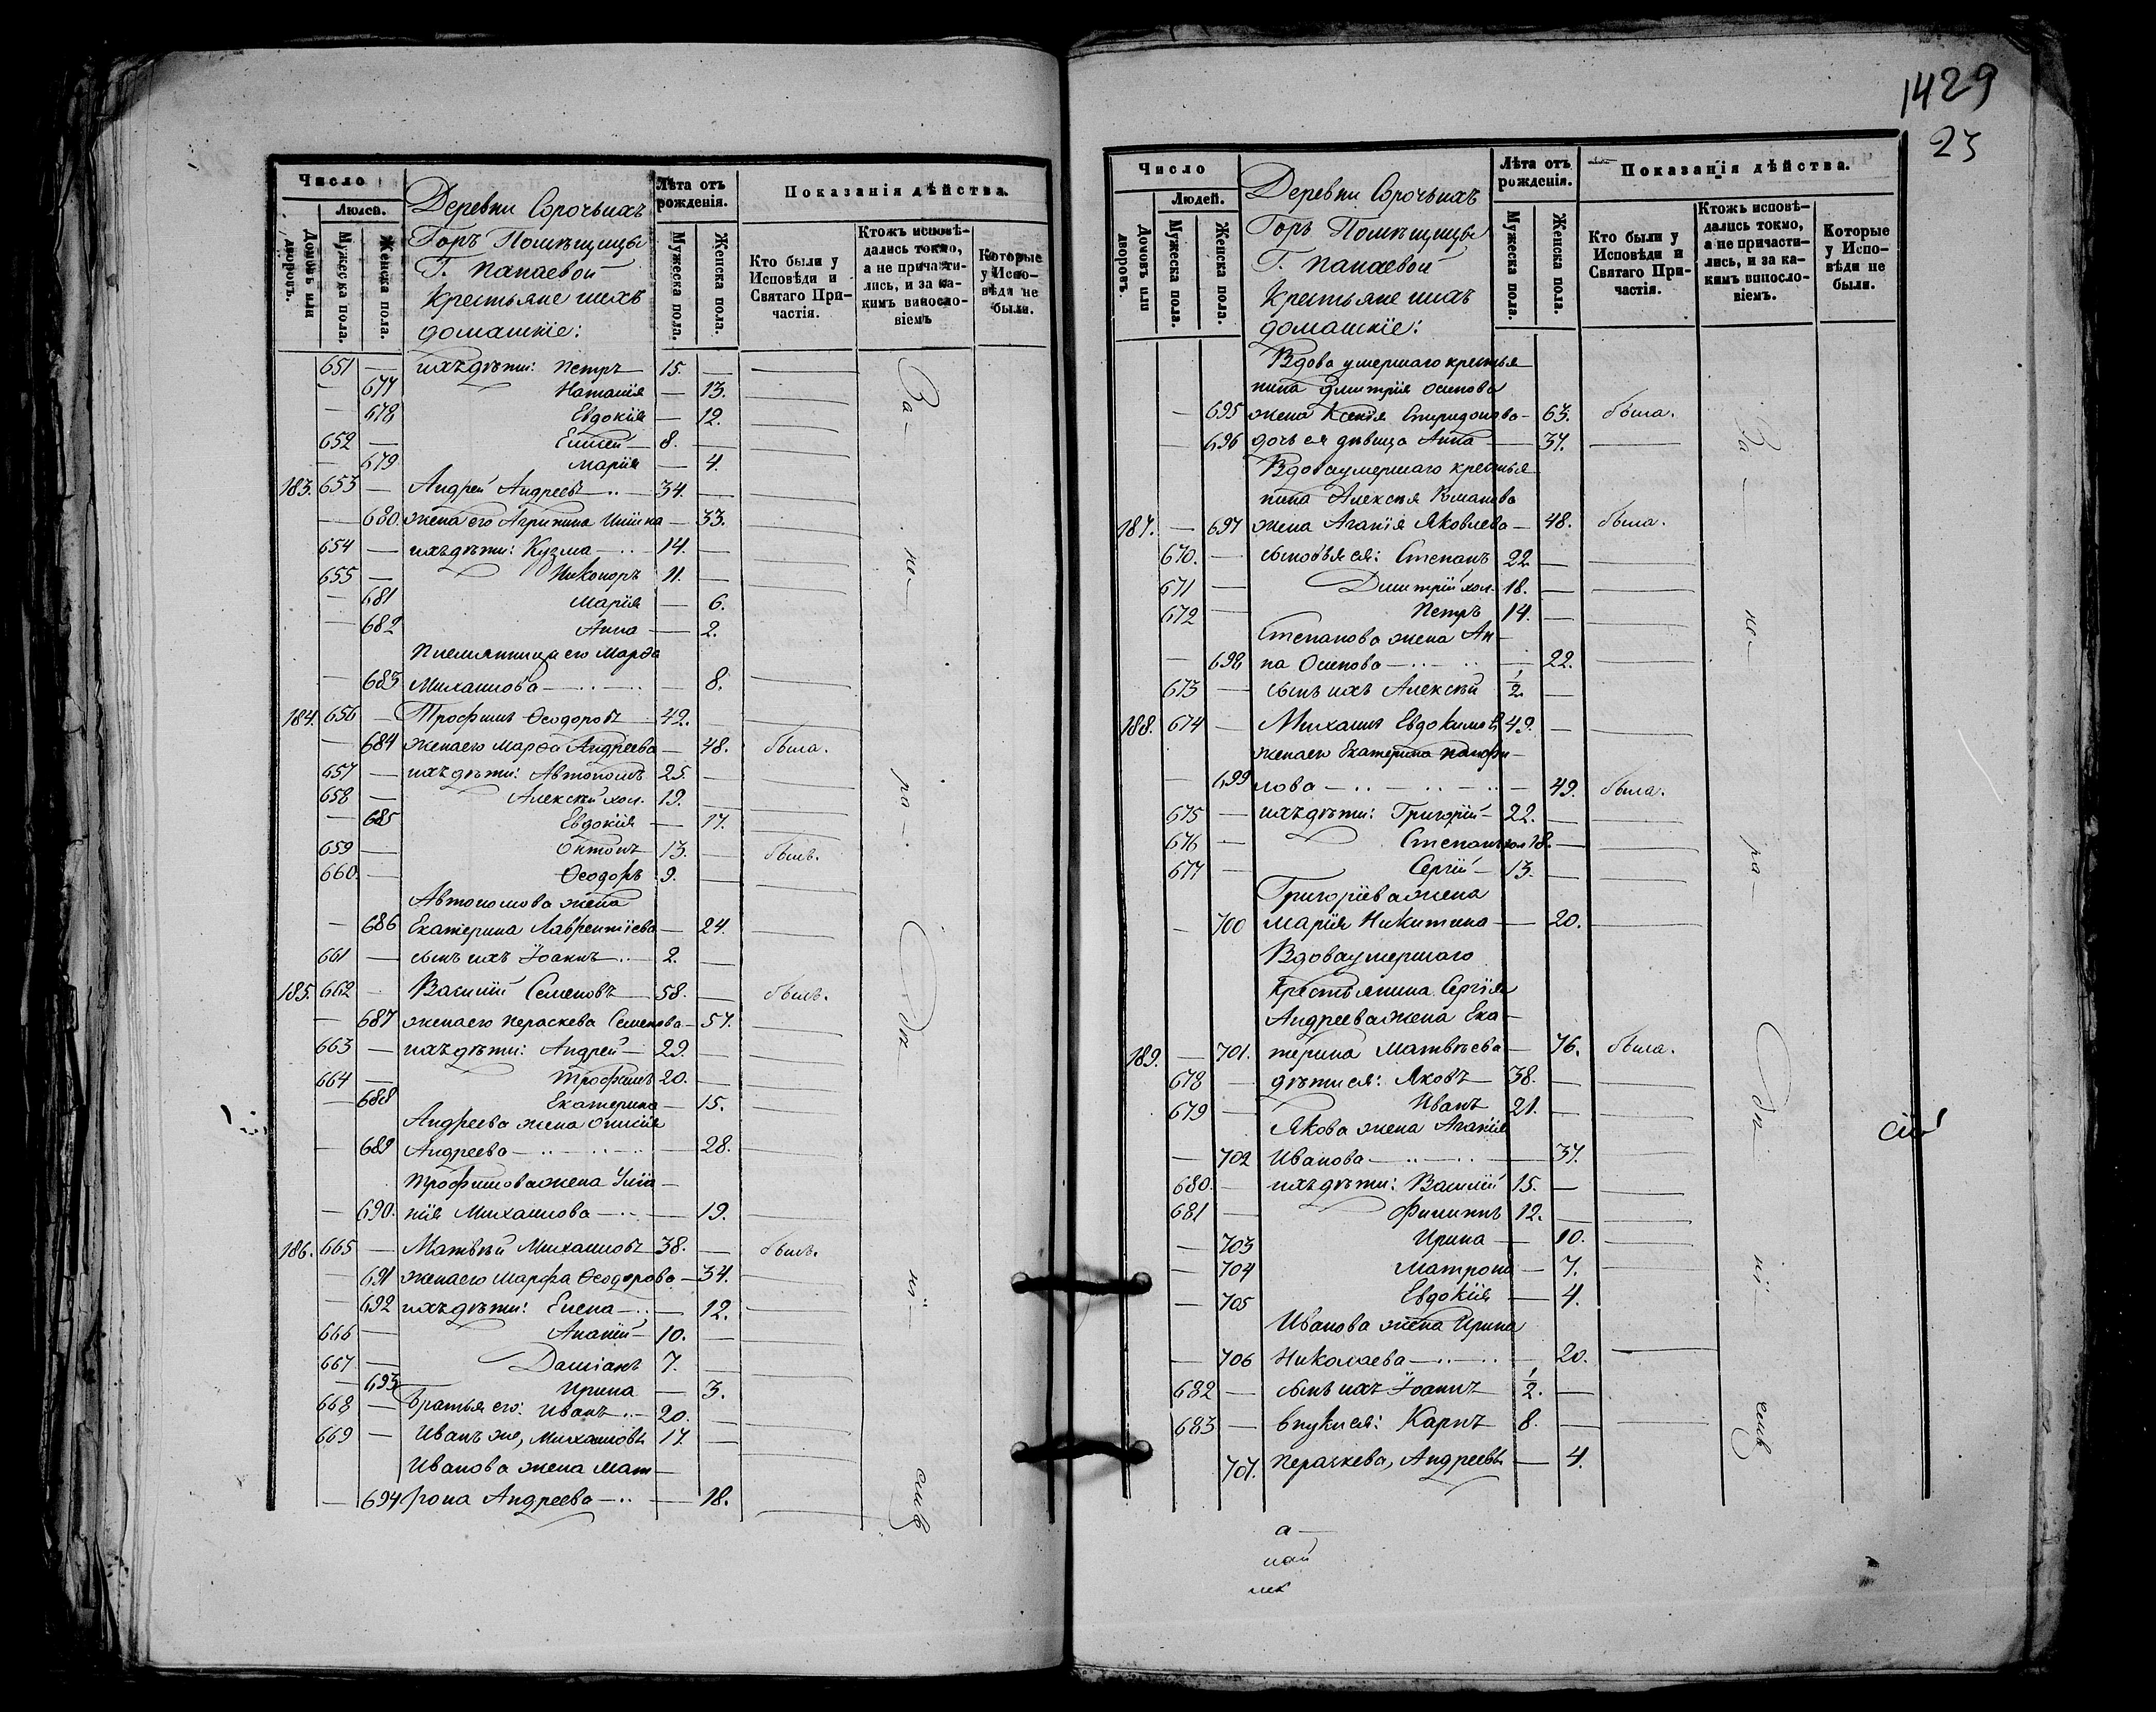 Число
Людей.
Домовъ или дворовъ.
Мужеска пола.
Женска пола.
Деревни Сорочьихъ
Горъ Помѣщицы
Г. Панаевой
Крестьяне и ихъ
домашніе:
Лѣта отъ рожденія.
Мужеска пола.
Женска пола.
Показанія дѣйства.
Кто были у Исповѣди и Святаго Причастія.
Ктожъ исповѣдались токмо, а не причастились, и за какимъ винословіемъ
Которые у Исповѣди не были.
651 — ихъ дѣти: Петръ 15. —
— 677 Наталія — 13.
— 678 Евдокія — 12.
652 — Елисей 8. —
— 679 Марія — 4.
183. 653 — Андрей Андреевъ 34. —
— 680. жена его Агрипина Ильина — 33.
654 — ихъ дѣти: Кузма 14. —
655 — Никоноръ 11. —
— 681 Марія — 6.
— 682 Анна — 2.
Племянница его Марѳа
— 683 Михаилова — 8.
184. 656 — Трофимъ Ѳеодоровъ 42. —
— 684 жена его Марѳа Андреева — 48. была.
657 — ихъ дѣти: Автономъ 25. —
658 — Алексѣй хол. 19. —
— 685 Евдокія — 17.
659 — Антонъ 13. — былъ.
660. — Ѳеодоръ 9. —
Автономова жена
— 686 Екатерина Лаврентіева — 24.
661 — сынъ ихъ Іоаннъ 2. —
185. 662 — Василій Семеновъ 58. — былъ.
— 687 жена его Пераскева Семенова — 57.
663 — ихъ дѣти: Андрей 29. —
664 — Трофимъ 20. —
— 688 Екатерина — 15.
Андреева жена
— 689 Андреева — 28.
Трофимова жена Уліа-
— 690. нія Михаилова — 19.
186. 665 — Матвѣй Михаиловъ 38. — былъ.
— 691 жена его Марфа Ѳеодорова — 34.
— 692 ихъ дѣти: Елена — 12.
666 — Ананій 10. —
667 — Даміанъ 7. —
— 693 Ирина — 3.
668 — Братья его: Иванъ 20. —
669 — Иванъ же, Михаиловъ 17. —
Иванова жена Мат-
— 694 рона Андреева — 18.
За-
не-
ра-
дѣ
ні-
емъ
1429
23
Число
Людей.
Домовъ или дворовъ.
Мужеска пола.
Женска пола.
Деревни Сорочьихъ
Горъ Помѣщицы
Г. Панаевой
Крестьяне и ихъ
домашніе:
Лѣта отъ рожденія.
Мужеска пола.
Женска пола.
Показанія дѣйства.
Кто были у Исповѣди и Святаго Причастія.
Ктожъ исповѣдались токмо, а не причастились, и за какимъ винословіемъ.
Которые у Исповѣди не были.
Вдова умершаго крестья
нина Дмитрія Осипова
— 695 жена Ксенія Спиридонова — 63. была.
— 696 дочь ея дѣвица Анна — 37.
Вдова умершаго крестья
нина Алексѣя Романова
187. — 697 жена Агапія Яковлева — 48. была.
670. — сыновья ея: Степанъ 22 —
671 — Димитрій хол. 18. —
672 — Петръ 14. —
Степанова жена Ан-
— 698 на Осипова — 22.
673 — сынъ ихъ Алексѣй 1/2 —
188. 674 — Михаилъ Евдокимовъ 49. —
жена его Екатерина Панфи-
— 699 лова — 49. была.
675 — ихъ дѣти: Григорій 22. —
676 — Степанъ хол 18. —
677 — Сергій 13. —
Григоріева жена
— 700 Марія Никитина — 20.
Вдова умершаго
Крестьянина Сергія
Андреева жена Ека-
189. — 701. терина Матвѣева — 76. была.
678 — дѣти ея: Яковъ 38. —
679 — Иванъ 21. —
Якова жена Агапія
— 702 Иванова — 37.
680. — ихъ дѣти: Василій 15. —
681 — Филиппъ 12. —
— 703 Ирина — 10.
— 704 Матрона — 7.
— 705 Евдокія — 4.
Иванова жена Ирина
— 706 Николаева — 20.
682 — сынъ ихъ Іоаннъ 1/2. —
683 — внуки ея: Карпъ 8. —
707. Пераскева, Андреевы — 4.
За-
не-
ра-
дѣ-
ні-
емъ